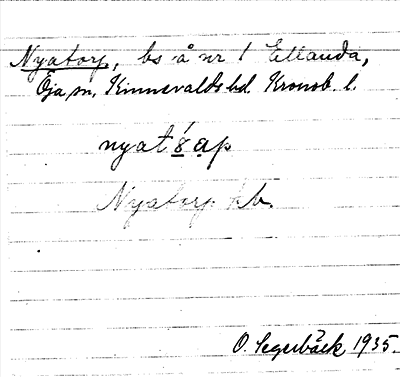 Nyatorp, bs å nr 1 Ellanda,
Öja sn, Kinnevalds hd. Kronob. l.
nyat
Nyatorp kb.
O. Segerbäck 1935.